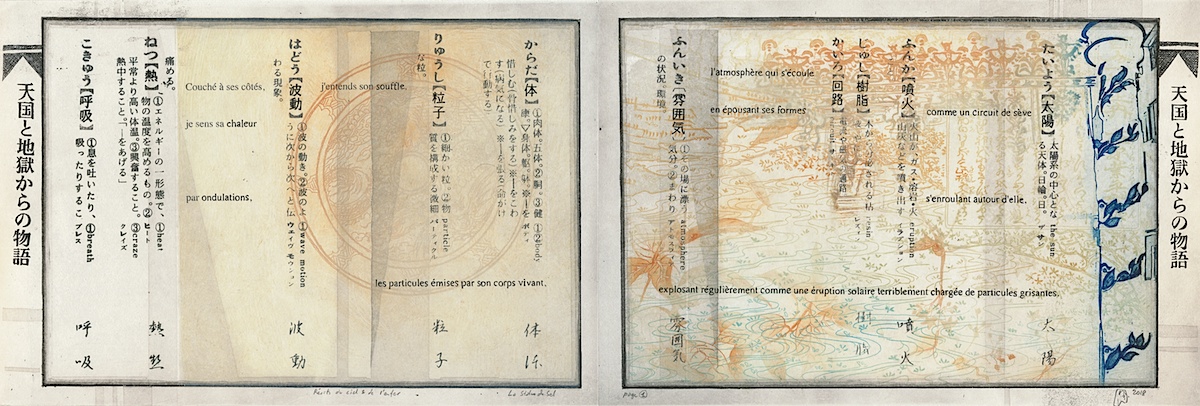 天国と地獄からの物語
からだ【体】
①肉体。五体。②胴。③健
①②body
ボディ
体
りゅうし【粒子】
①細かい粒。②物
質を構成する微細
な粒。
particle
パーティクル
粒子
はどう【波動】
①波の動き。②波のよ
うに次から次へと伝
わる現象。
①wave motion
ウエイヴ モウション
波動
ねつ【熱】
①エネルギーの一形態で、
物の温度を高めるもの。②
平常より高い体温。③興奮すること。
熱中すること。「―をあげる」
①heat
ヒート
③craze
クレイズ
熱
痛める。
こきゅう【呼吸】
①息を吐いたり、
吸ったりするこ
①breath
ブレス
呼吸
Couché à ses côtés, j'entends son souffle,
je sens sa chaleur
par ondulations,
les particules émises par son corps vivant.
Récits du ciel & de l'enfer
天国と地獄からの物語
たいよう【太陽】
太陽系の中心とな
る天体。日輪。日。
the sun
ザ サン
太陽
ふんか【噴火】
火山が、ガス・溶岩・火
山灰などを噴き出す
eruption
イラプション
噴火
じゅし【樹脂】
resin
レズィン
樹脂
かいろ【回路】
ふんいき【雰囲気】
①その場に漂う
気分。②まわり
の状況。環境。
atmosphere
アトモスフィア
l'atmosphère qui s'écoule
en épousant ses formes comme un circuit de sève
s'enroulant autour d'elle,
explosant régulièrement comme une éruption solaire terriblement chargée de particules grisantes.
page ①
2018